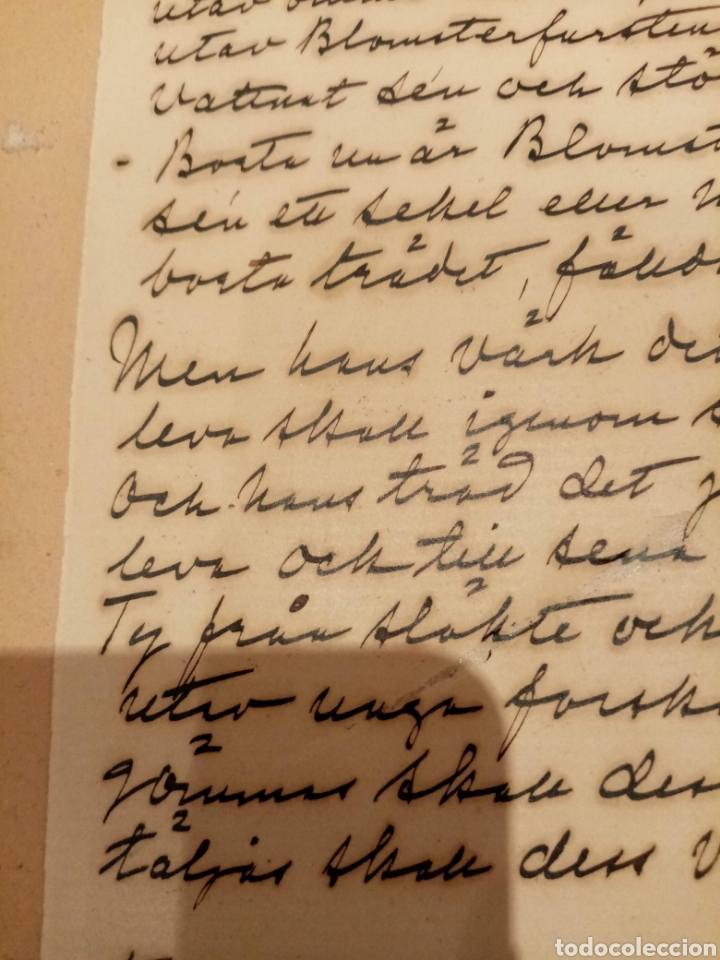 utav
utav Blomsterfursten
Vattnat sén och stö
- Borta nu är Blomst
sén ett sekel eller
borta trädet, fälld
Men hans värk det
leva skall igenom s
Och hans träd det g
leva och till sena
Ty från släkte och
utav unga forska
gömmas skall dess
täljas skall dess V
todocoleccion